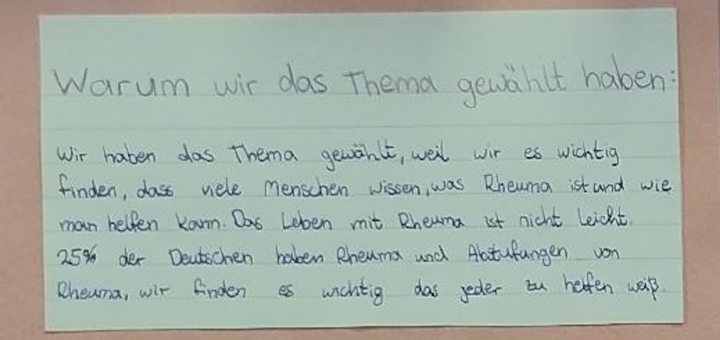 Warum wir das Thema gewählt haben:
Wir haben das Thema gewählt, weil wir es wichtig
finden, dass viele Menschen wissen, was Rheuma ist und wie
man helfen kann. Das Leben mit Rheuma ist nicht leicht.
25% der Deutschen haben Rheuma und Abstufungen von
Rheuma, wir finden es wichtig das jeder zu helfen weiß.